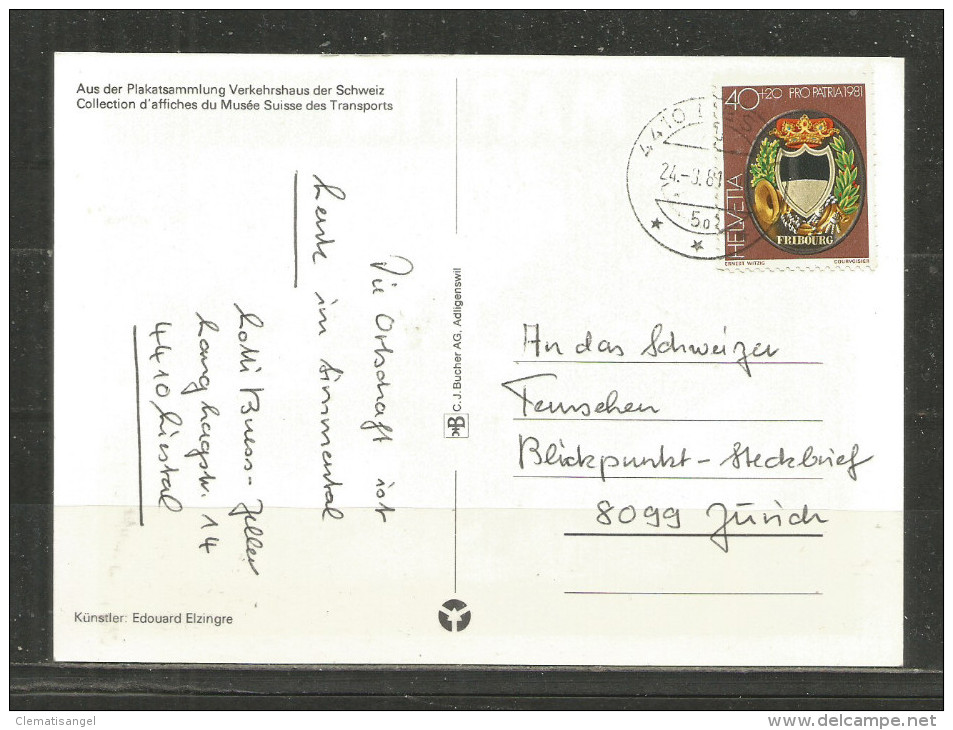 Aus der Plakatsammlung Verkehrshaus der Schweiz
Collection d'affiches du Musée Suisse des Transports
40+20 PRO PATRIA 1981
HELVETIA
FRIBOURG
ERNEST WITZIG COURVOISIER
4410
24.-9.81
Die Ortschaft ist
Lenk im Simmental
Lotti Buess-Zeller
Langhagstr. 14
4410 Liestal
C.J. Bucher AG, Adligenswil
An das Schweizer
Fernsehen
Blickpunkt-Steckbrief
8099 Zürich
Künstler: Edouard Elzingre
Clematisangel
delcampe.net